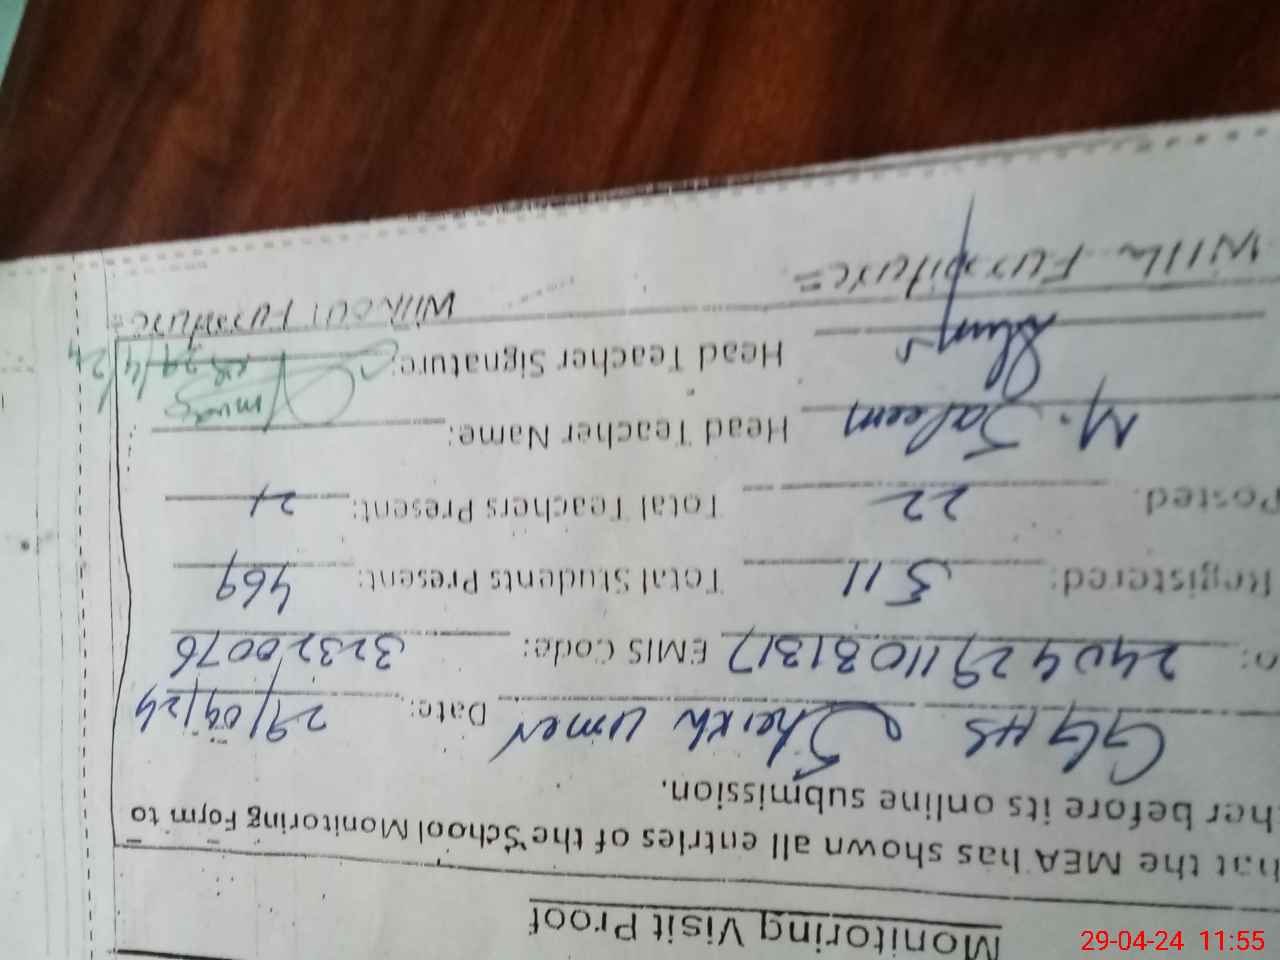 Monitoring Visit Proof
hat the MEA has shown all entries of the School Monitoring Form to
her before its online submission.
GGHS Sheikh umer Date: 29/04/24
o: 24042911081317 EMIS Code: 32320076
Registered: 511 Total Students Present: 469
Posted: 22 Total Teachers Present: 21
M. Saleem Head Teacher Name:
Head Teacher Signature: 29/4/24
With Furniture= Without Furniture=
29-04-24 11:55